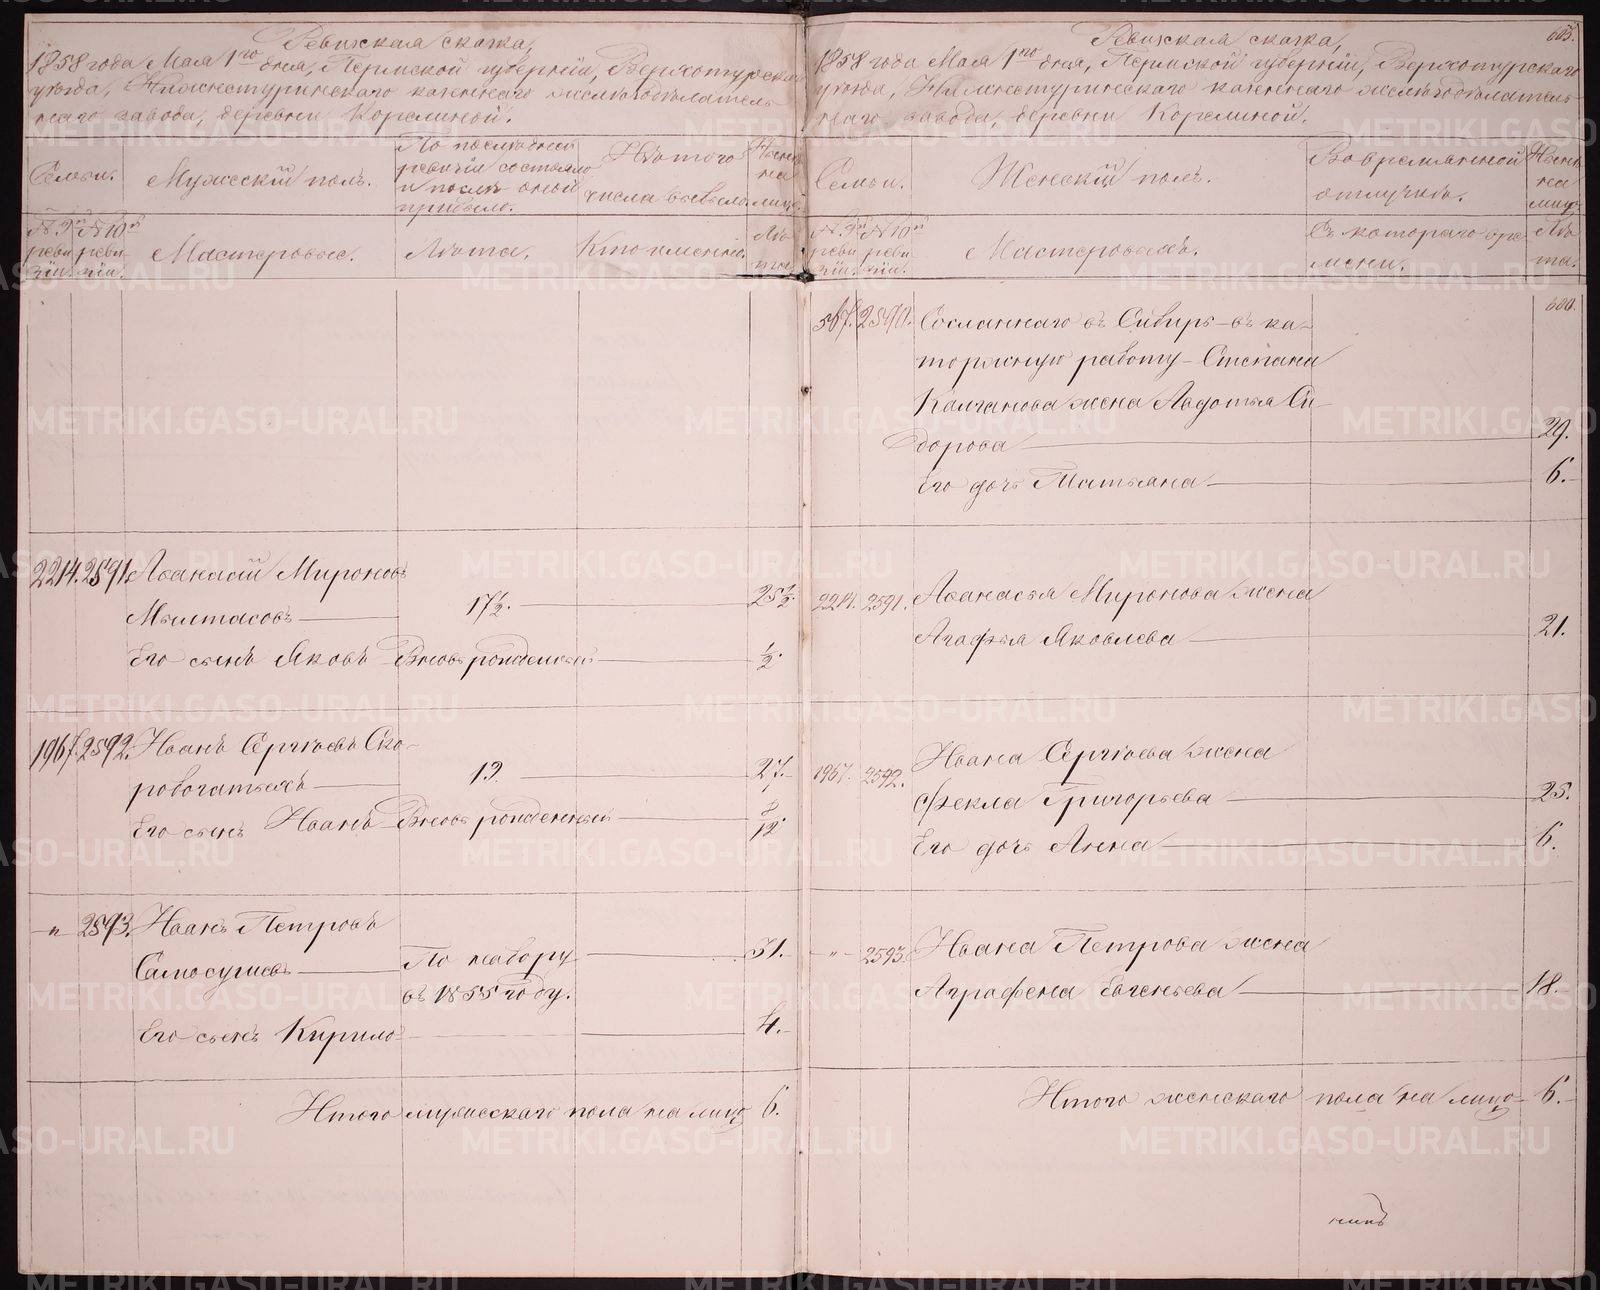 Ревижская сказка,
1858 года Мая 1го дня, Пермской губернiи, Верхотурскаго
уѣзда, Нижнетуринскаго казеннаго желѣзодѣлатель-
наго завода, деревни Корелиной.
Семьи.
Мужескiй полъ.
По послѣдней
ревизiи состояло
и послѣ оной
прибыло.
Изъ того
числа выбыло.
Нынѣ
на
лицо.
№ 9й
реви
зiи.
№ 10й
реви-
зiи.
Мастеровые.
Лѣта.
Кто именно.
Лѣ
та.
2214. 2591. Афанасiй Мироновъ
Мылтасовъ 17½. 25½.
Его сынъ Яковъ Вновь рожденный ½.
1967. 2592. Иванъ Сергѣевъ Ско-
робогатыхъ 19. 27.
Его сынъ Иванъ Вновь рожденный
-"- 2593. Иванъ Петровъ
Самосудиевъ По набору 31.
въ 1855 году.
Его сынъ Кирило 4.
Итого мужескаго пола на лицо 6.
Ревижская сказка,
603.
1858 года Мая 1го дня, Пермской губернiи, Верхотурскаго
уѣзда, Нижнетуринскаго казеннаго желѣзодѣлатель-
наго завода, деревни Корелиной.
Семьи.
Женскiй полъ.
Во временной
отлучкѣ.
Нынѣ
на
лицо.
№ 9й
реви
зiи.
№ 10й
реви-
зiи.
Мастеровыхъ.
Съ котораго вре
мени.
Лѣ
та.
600.
567. 2590. Сосланнаго въ Сибирь въ ка-
торжную работу Степана
Колчанова жена Авдотья Си-
дорова 29.
Его дочь Татьяна 6.
2214. 2591. Афанасья Миронова жена
Агафья Яковлева 21.
1967. 2592. Ивана Сергѣева жена
Фекла Григорьева 25.
Его дочь Анна 6.
-"- 2593. Ивана Петрова жена
Аграфена Евгеньева 18.
Итого женскаго пола на лицо 6.
METRIKI.GASO-URAL.RU